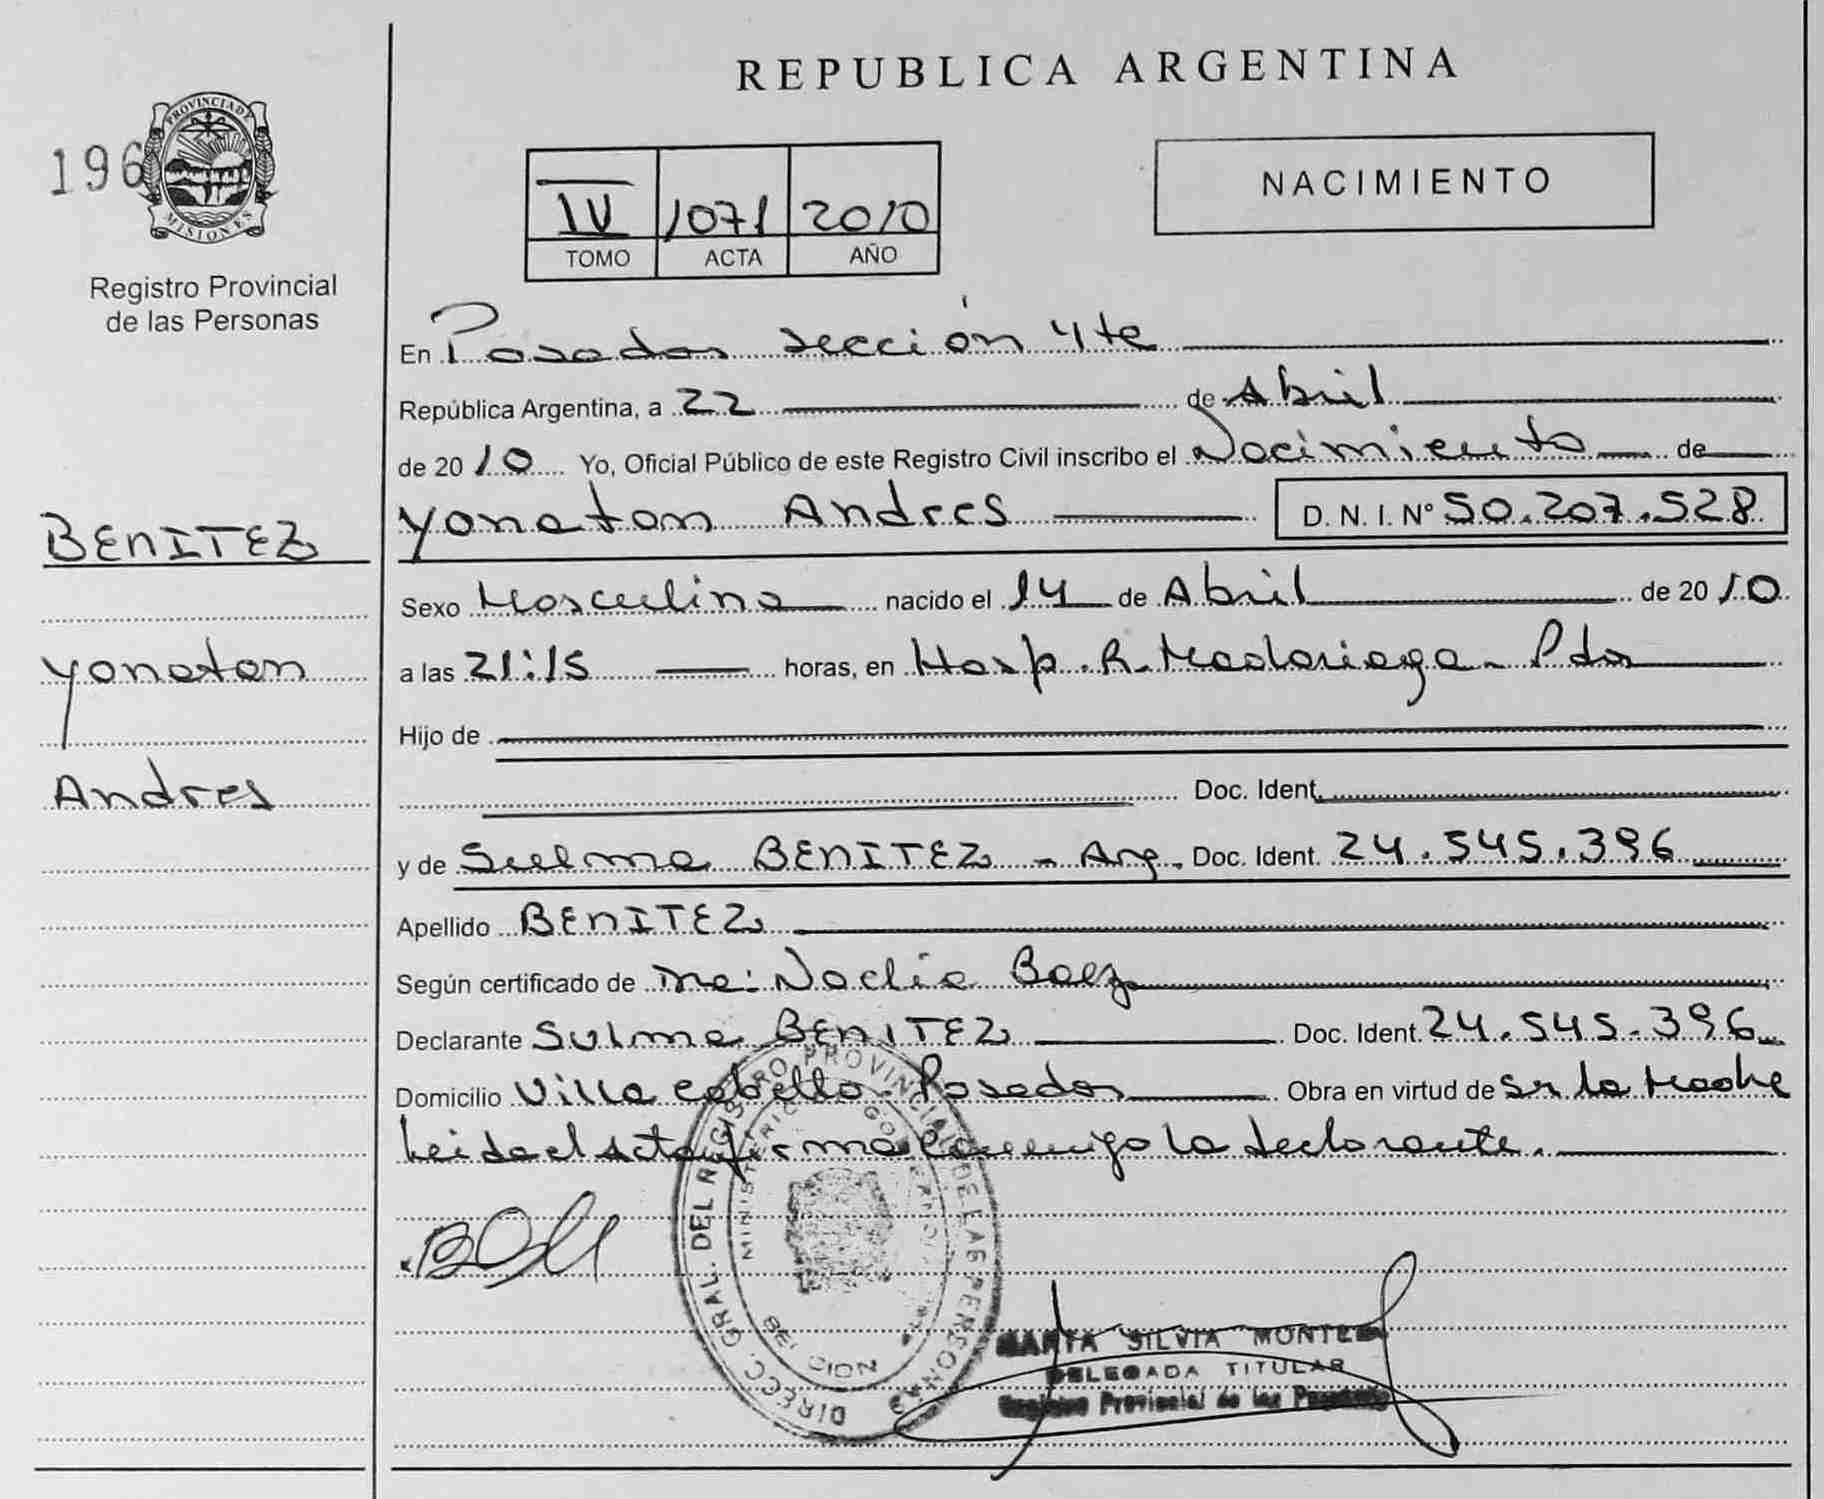 REPUBLICA ARGENTINA
196
PROVINCIA DE
MISIONES
Registro Provincial
de las Personas
IV 1071 2010
TOMO ACTA AÑO
NACIMIENTO
En Posadas sección 4te
República Argentina, a 22 de Abril
de 2010 Yo, Oficial Público de este Registro Civil inscribo el Nacimiento de
Yonatan Andres D. N. I. N° 50.207.528
BENITEZ
Yonatan
Andres
Sexo Masculino nacido el 14 de Abril de 2010
a las 21:15 horas, en Hosp. R. Madariaga - Pdas
Hijo de
Doc. Ident.
y de Sulma BENITEZ - Arg. Doc. Ident. 24.545.396
Apellido BENITEZ
Según certificado de Noelia Baez
Declarante Sulma BENITEZ Doc. Ident. 24.545.396
Domicilio Villa Cabello Posadas Obra en virtud de Sr la Madre
Leida el Acta firma conmigo la declarante.
DIRECC. GRAL. DEL REGISTRO PROVINCIAL DE LAS PERSONAS
MINISTERIO GOBIERNO
SILVIA MONTE
DELEGADA TITULAR
Registro Provincial de las Personas